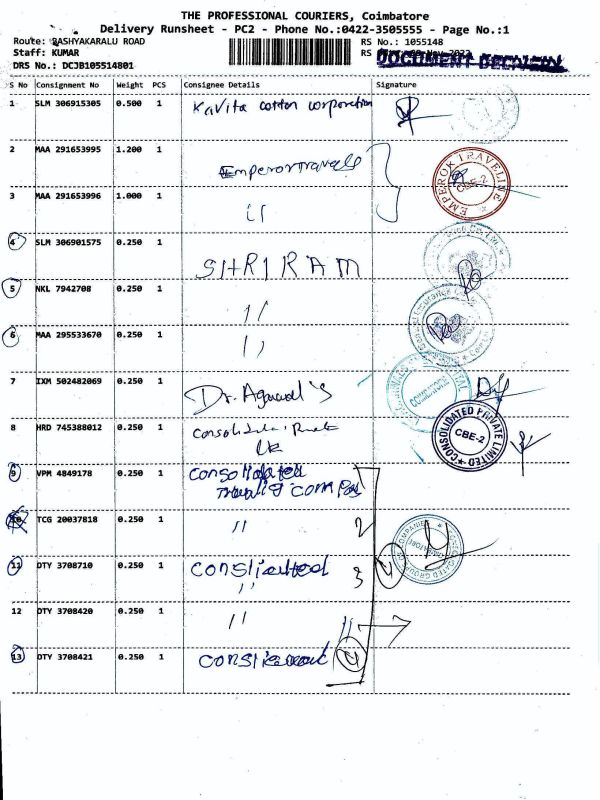 THE PROFESSIONAL COURIERS, Coimbatore
Delivery Runsheet - PC2 - Phone No.:0422-3505555 - Page No.:1
Route: BASHYAKARALU ROAD
RS No.: 1055148
Staff: KUMAR
RS
DOCUMENT
DRS No.: DCJB105514801
S No Consignment No Weight PCS Consignee Details Signature
1 SLM 306915305 0.500 1 Kavita cotton corporation
2 MAA 291653995 1.200 1 Emperortravels
EMPEROR TRAVELINE CBE-2
3 MAA 291653996 1.000 1 11
4 SLM 306901575 0.250 1 SHRIRAM
5 NKL 7942708 0.250 1 11
6 MAA 295533670 0.250 1 11
7 IXM 502482069 0.250 1 Dr. Agarwal's
8 HRD 745388012 0.250 1
CONSOLIDATED PRIVATE LIMITED CBE-2
9 VPM 4849178 0.250 1 Consolidated
10 TCG 20037818 0.250 1 11 2
11 DTY 3708710 0.250 1 3
11
12 DTY 3708420 0.250 1 11 11
13 DTY 3708421 0.250 1